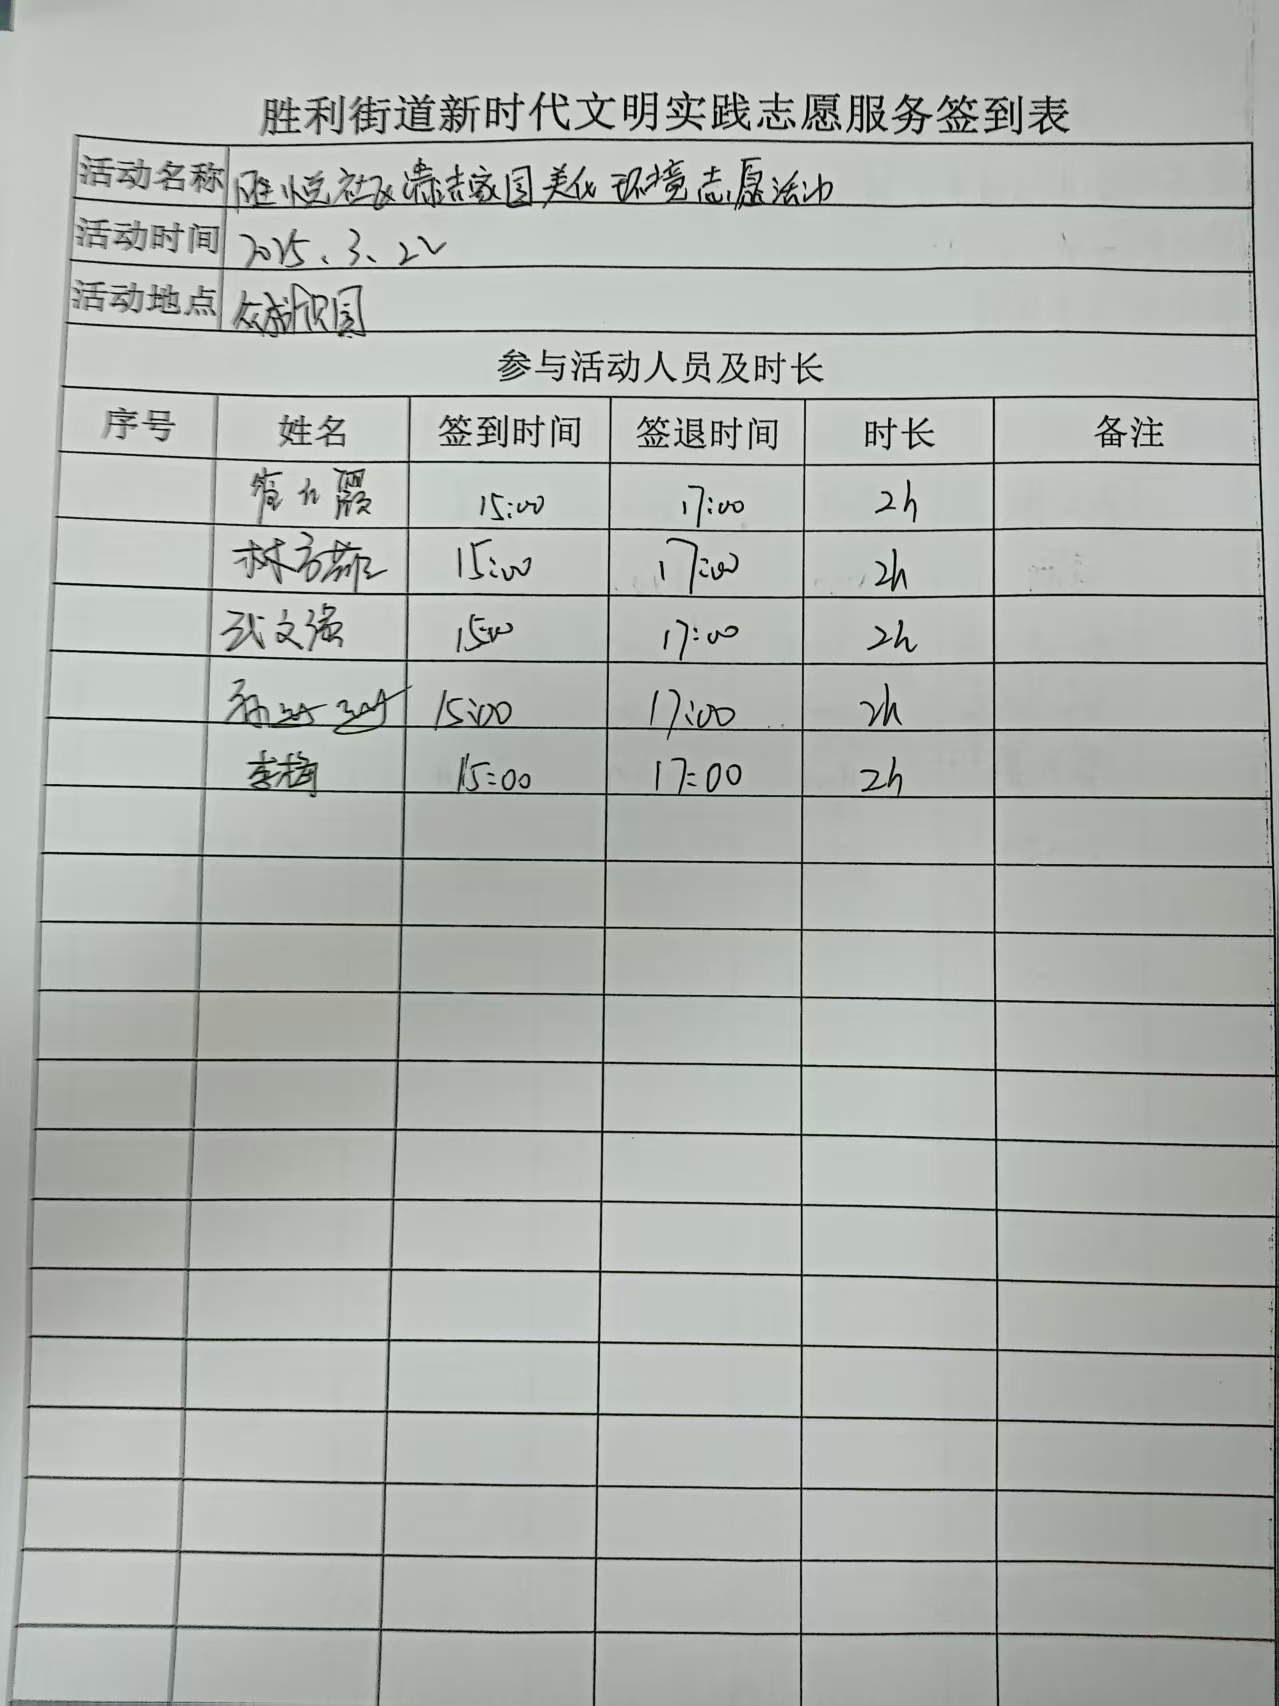 胜利街道新时代文明实践志愿服务签到表
活动名称 胜悦社区清洁家园美化环境志愿活动
活动时间 2025.3.22
活动地点
参与活动人员及时长
序号 姓名 签到时间 签退时间 时长 备注
15:00 17:00 2h
林方茹 15:00 17:00 2h
武文强 15:00 17:00 2h
15:00 17:00 2h
李梅 15:00 17:00 2h